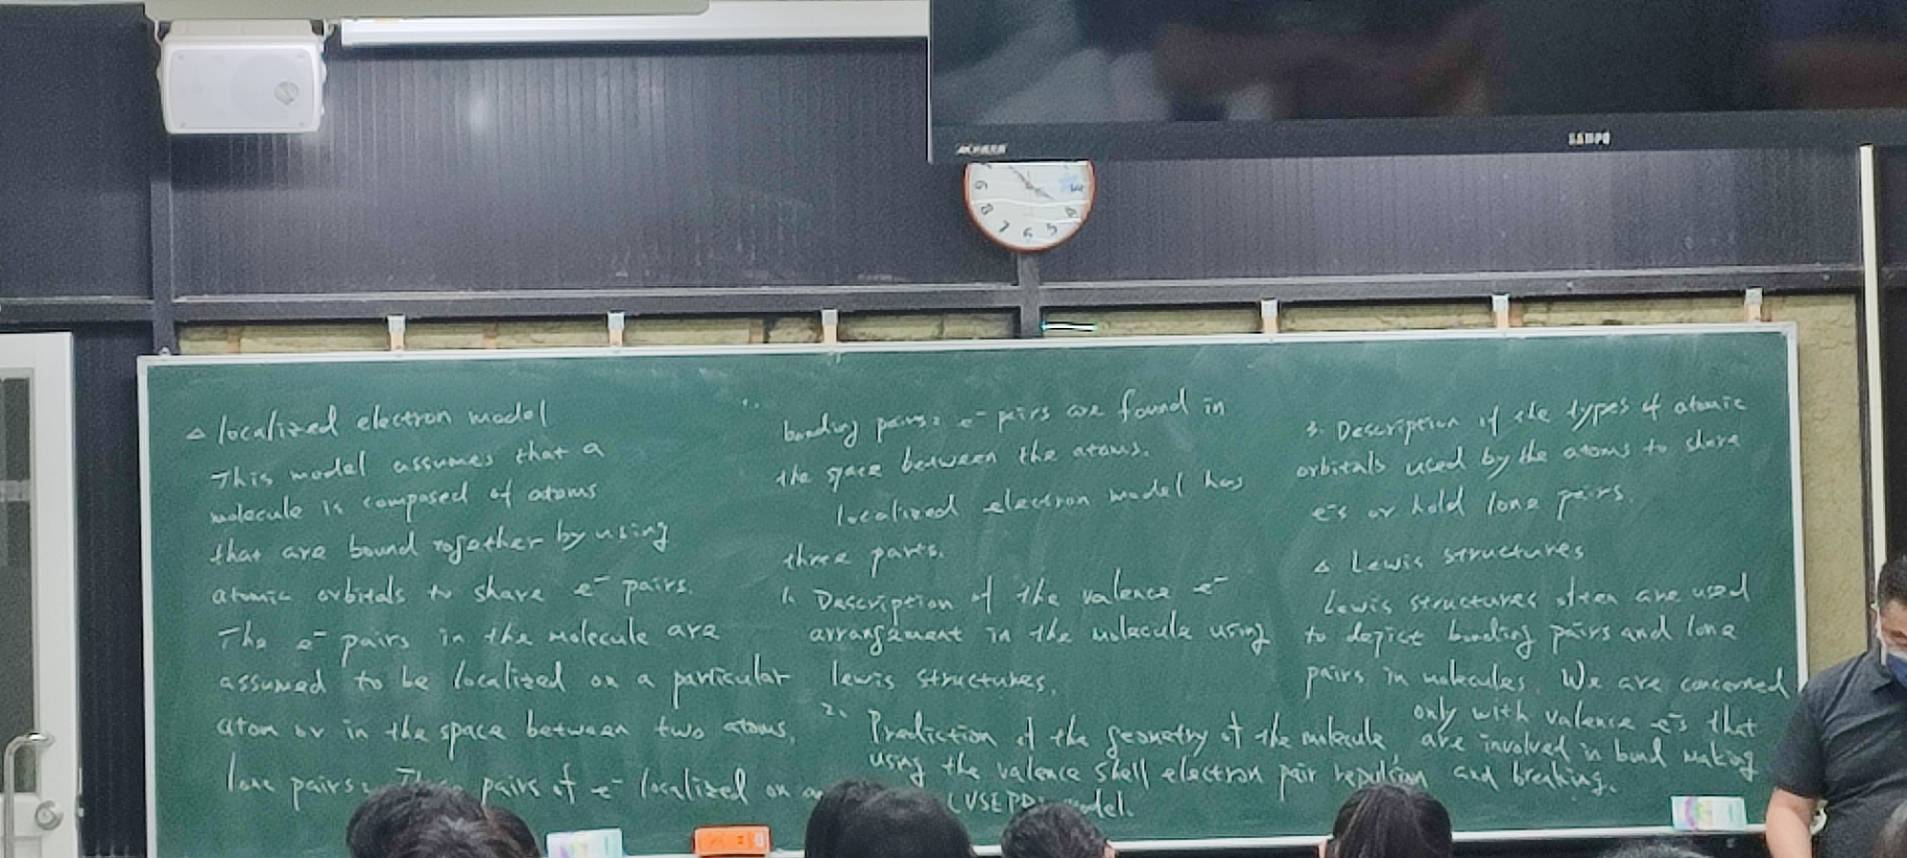 △ localized electron model
This model assumes that a
molecule is composed of atoms
that are bound together by using
atomic orbitals to share e⁻ pairs.
The e⁻ pairs in the molecule are
assumed to be localized on a particular
atom or in the space between two atoms.
lone pairs: pairs of e⁻ localized on
bonding pairs: e⁻ pairs are found in
the space between the atoms.
localized electron model has
three parts.
1. Description of the valence e⁻
arrangement in the molecule using
lewis structures.
2. Prediction of the geometry of the molecule
using the valence shell electron pair repulsion
(VSEPR) model.
3. Description of the types of atomic
orbitals used by the atoms to share
e⁻s or hold lone pairs.
△ Lewis structures
Lewis structures often are used
to depict bonding pairs and lone
pairs in molecules. We are concerned
only with valence e⁻s that
are involved in bond making
and breaking.
SAMPO
9
8
7
6
5
4
3